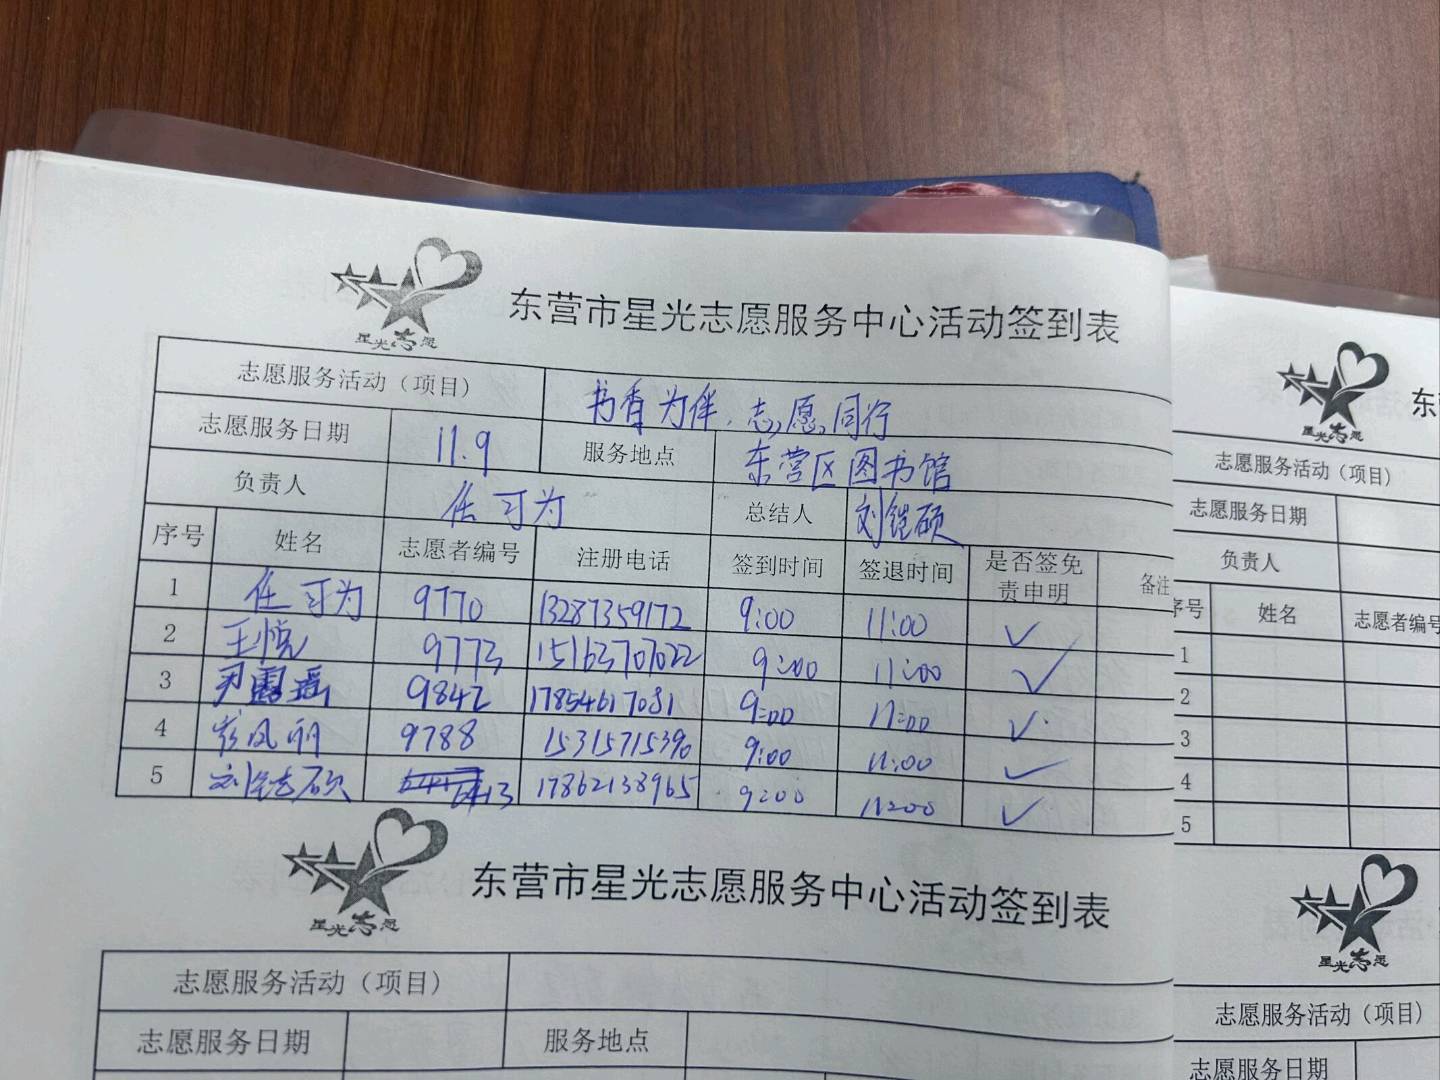 星光志愿
东营市星光志愿服务中心活动签到表
志愿服务活动（项目） 书香为伴，志愿同行
志愿服务日期 11.9 服务地点 东营区图书馆
负责人 任可为 总结人 刘铠硕
序号 姓名 志愿者编号 注册电话 签到时间 签退时间 是否签免责申明 备注
1 任可为 9770 13287359172 9:00 11:00 ✓
2 王悦 9773 15163707022 9:00 11:00 ✓
3 尹 瑶 9842 17854617081 9:00 11:00 ✓
4 凤丽 9788 15315715390 9:00 11:00 ✓
5 刘铠硕 17862138965 9:00 11:00 ✓
星光志愿
东营市星光志愿服务中心活动签到表
志愿服务活动（项目）
志愿服务日期 服务地点
星光志愿
东
志愿服务活动（项目）
志愿服务日期
负责人
序号 姓名 志愿者编号
1
2
3
4
5
星光志愿
志愿服务活动（项目）
志愿服务日期